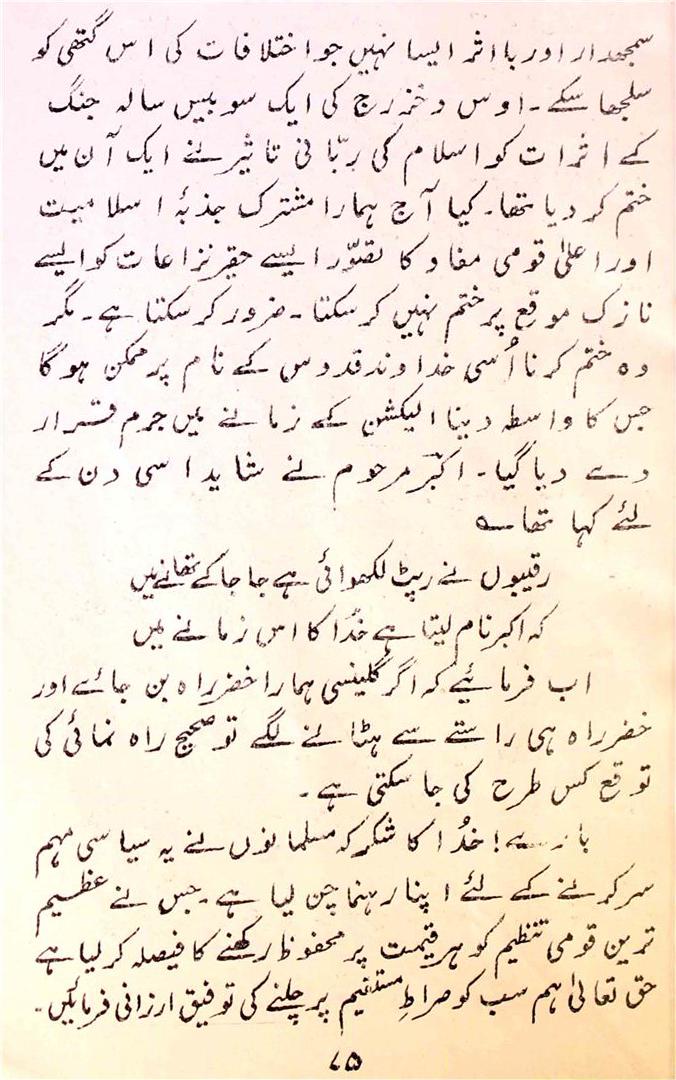 سمجھدار اور بااثر ایسا نہیں جو اختلافات کی اس گتھی کو
سلجھا سکے۔ اوس و خزرج کی ایک سو بیس سالہ جنگ
کے اثرات کو اسلام کی ربّانی تاثیر نے ایک آن میں
ختم کر دیا تھا۔ کیا آج ہمارا مشترک جذبۂ اسلامیت
اور اعلیٰ قومی مفاد کا تصوّر ایسے حقیر نزاعات کو ایسے
نازک موقع پر ختم نہیں کر سکتا۔ ضرور کر سکتا ہے۔ مگر
وہ ختم کرنا اُسی خداوند قدوس کے نام پر ممکن ہو گا
جس کا واسطہ دینا الیکشن کے زمانے میں جرم قرار
دے دیا گیا۔ اکبرؔ مرحوم نے شاید اسی دن کے
لئے کہا تھا ؎
رقیبوں نے رپٹ لکھوائی ہے جا جا کے تھانے میں
کہ اکبر نام لیتا ہے خُدا کا اس زمانے میں
اب فرمائیے کہ اگر گلینسی ہمارا خضر راہ بن جائے اور
خضر راہ ہی راستے سے ہٹانے لگے تو صحیح راہ نمائی کی
توقع کس طرح کی جا سکتی ہے۔
بارے! خُدا کا شکر کہ مسلمانوں نے یہ سیاسی مہم
سر کرنے کے لئے اپنا رہنما چن لیا ہے۔ جس نے عظیم
ترین قومی تنظیم کو ہر قیمت پر محفوظ رکھنے کا فیصلہ کر لیا ہے
حق تعالیٰ ہم سب کو صراطِ مستقیم پر چلنے کی توفیق ارزانی فرمائیں۔
۷۵